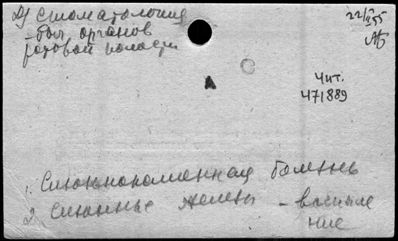 Д) Стоматология
- бол. органов
ротовой полости
22/V 355
АБ
А
С
Чит.
471889
1. Слюннокаменная болезнь
2. Слюнные железы - воспале
ние